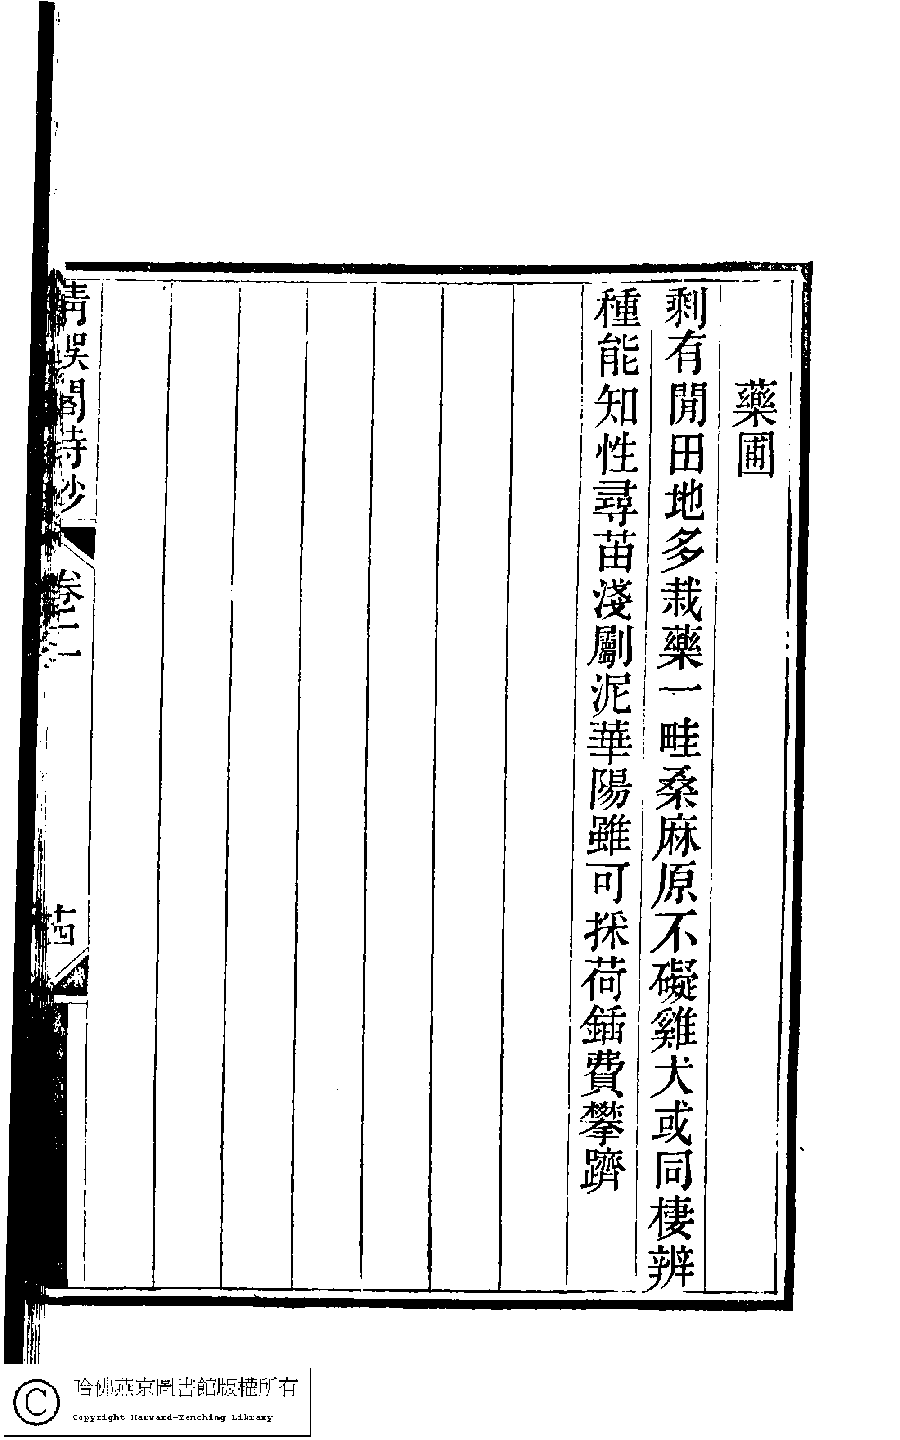 藥圃
剩有閒田地多栽藥一畦桑麻原不礙雞犬或同棲辨
種能知性尋苗淺劚泥華陽雖可採荷鍤費攀躋
清娛閣詩鈔
卷二
十四
哈佛燕京圖書館版權所有
Copyright Harvard-Yenching Library